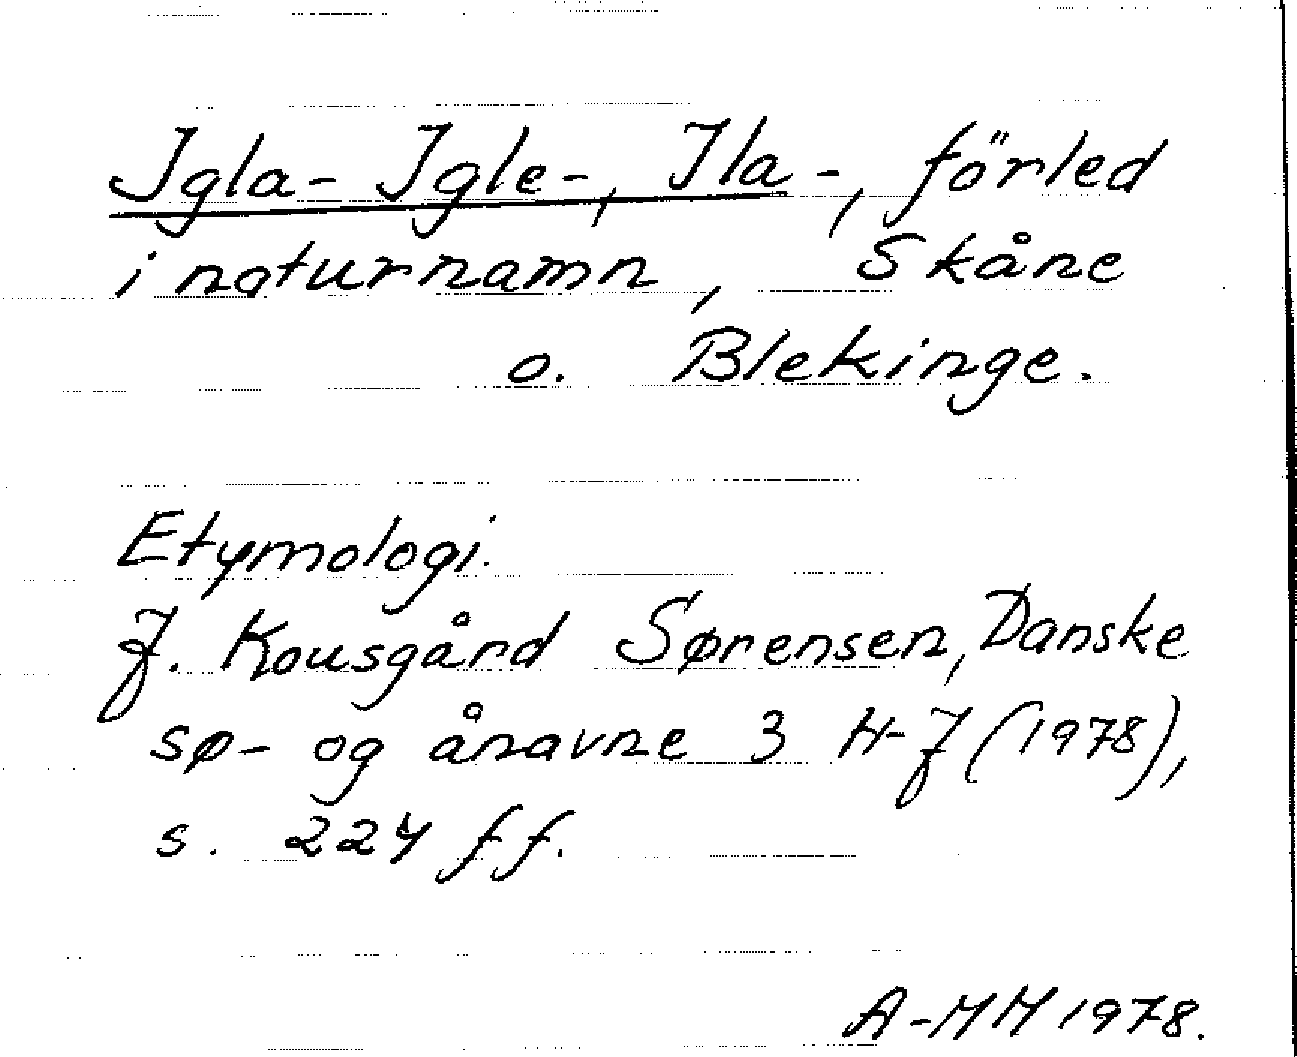 Igla- Igle-, Ila-, förled
i naturnamn, Skåne
o. Blekinge.
Etymologi.
J. Kousgård Sørensen, Danske
sø- og ånavne 3 H-J (1978),
s. 224 ff.
A-MM 1978.